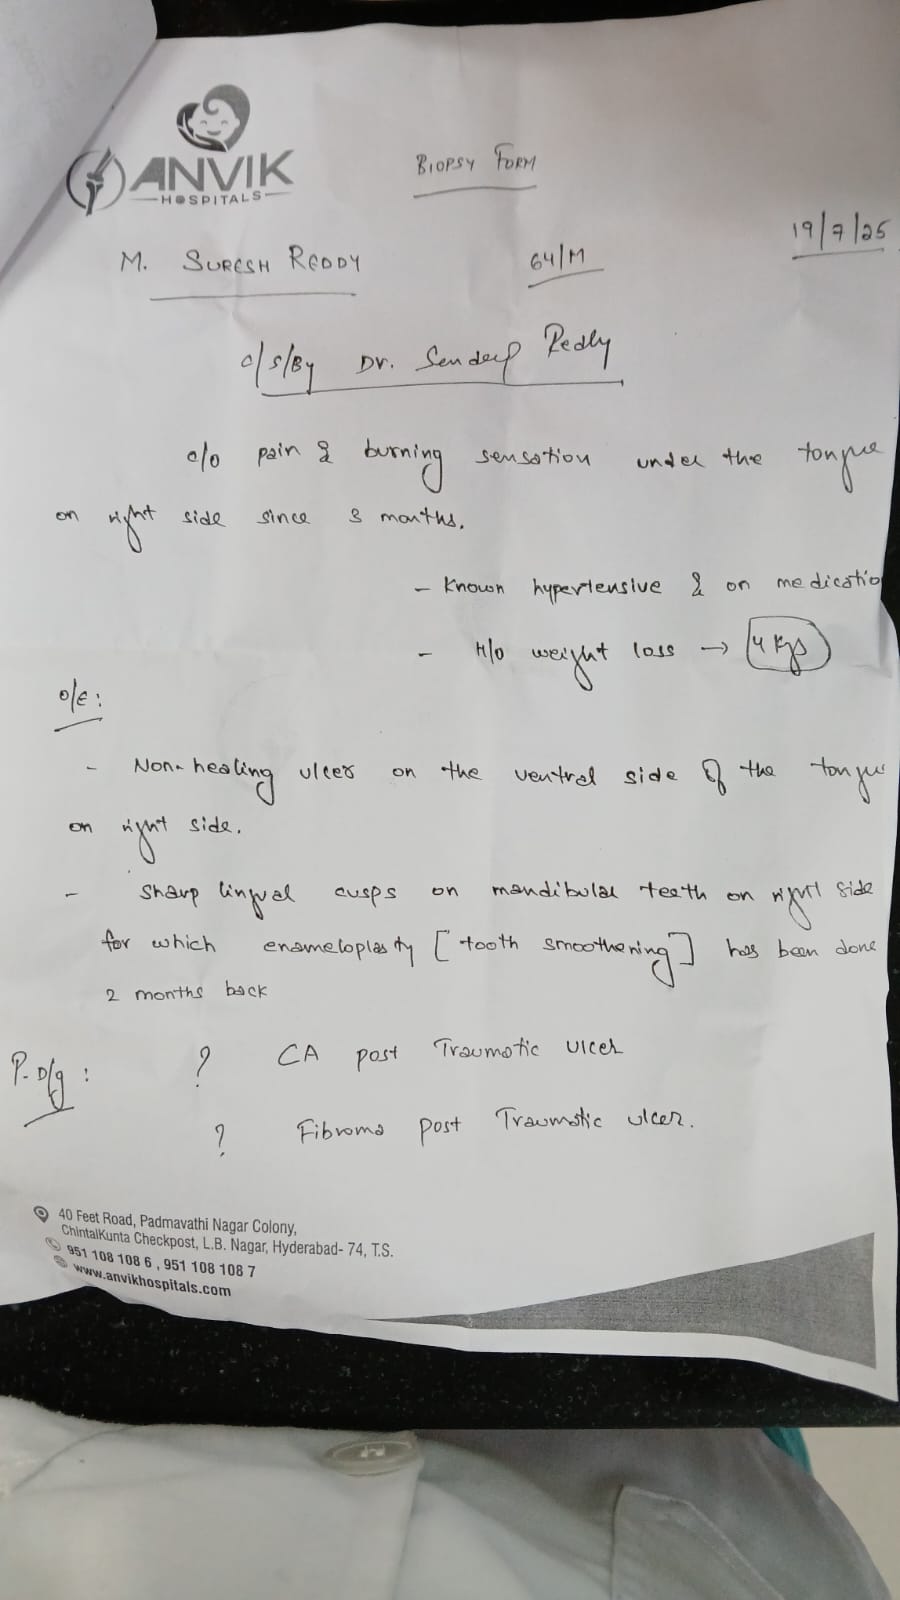 ANVIK
HOSPITALS
BIOPSY FORM
19/7/25
M. SURESH REDDY 64/M
c/s/By Dr. Sandeep Reddy
c/o pain & burning sensation under the tongue
on right side since 3 months.
- Known hypertensive & on medicatio
- H/o weight loss → 4 Kgs
o/E:
- Non-healing ulcer on the ventral side of the tongue
on right side.
- Sharp lingual cusps on mandibular teeth on right side
for which enameloplasty [tooth smoothening] has been done
2 months back
P.D/g: ? CA post Traumatic ulcer
? Fibroma post Traumatic ulcer.
40 Feet Road, Padmavathi Nagar Colony,
ChintalKunta Checkpost, L.B. Nagar, Hyderabad- 74, T.S.
951 108 108 6 , 951 108 108 7
www.anvikhospitals.com